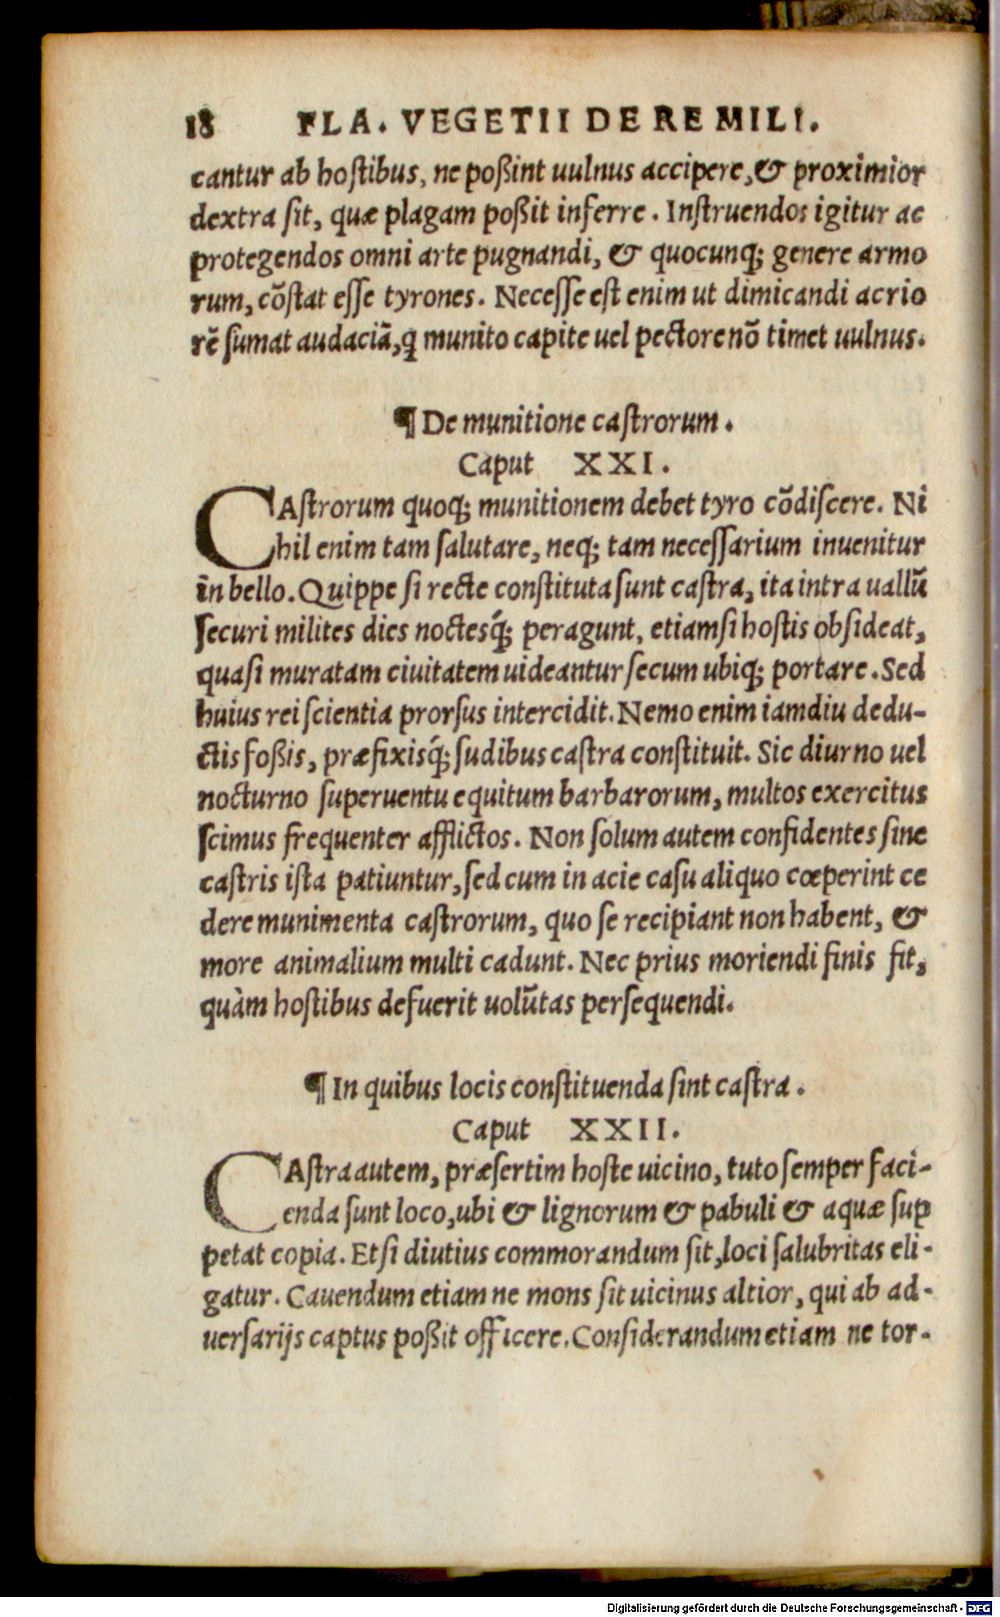 18 FLA. VEGETII DE RE MILI.
cantur ab hoſtibus, ne poßint uulnus accipere, & proximior
dextra ſit, quæ plagam poßit inferre. Inſtruendos igitur ac
protegendos omni arte pugnandi, & quocunq; genere armo
rum, cõſtat eſſe tyrones. Neceſſe eſt enim ut dimicandi acrio
rẽ ſumat audaciã, q munito capite uel pectore nõ timet uulnus.
¶ De munitione caſtrorum.
Caput XXI.
CAſtrorum quoq; munitionem debet tyro cõdiſcere. Ni
hil enim tam ſalutare, neq; tam neceſſarium inuenitur
in bello. Quippe ſi recte conſtituta ſunt caſtra, ita intra uallũ
ſecuri milites dies noctesq́; peragunt, etiamſi hoſtis obſideat,
quaſi muratam ciuitatem uideantur ſecum ubiq; portare. Sed
huius rei ſcientia prorſus intercidit. Nemo enim iamdiu dedu-
ctis foßis, præfixisq́; ſudibus caſtra conſtituit. Sic diurno uel
nocturno ſuperuentu equitum barbarorum, multos exercitus
ſcimus frequenter afflictos. Non ſolum autem confidentes ſine
caſtris iſta patiuntur, ſed cum in acie caſu aliquo cœperint ce
dere munimenta caſtrorum, quo ſe recipiant non habent, &
more animalium multi cadunt. Nec prius moriendi finis fit,
quàm hoſtibus defuerit uolũtas perſequendi.
¶ In quibus locis conſtituenda ſint caſtra.
Caput XXII.
CAſtra autem, præſertim hoſte uicino, tuto ſemper faci-
enda ſunt loco, ubi & lignorum & pabuli & aquæ ſup
petat copia. Et ſi diutius commorandum ſit, loci ſalubritas eli-
gatur. Cauendum etiam ne mons ſit uicinus altior, qui ab ad-
uerſarijs captus poßit officere. Conſiderandum etiam ne tor-
Digitalisierung gefördert durch die Deutsche Forschungsgemeinschaft - DFG